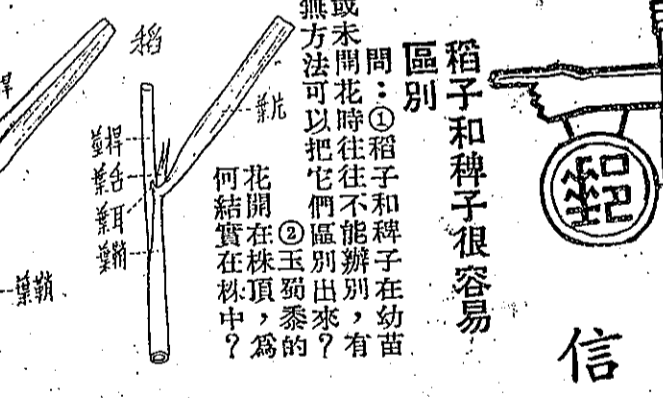 信
稻子和稗子很容易
區別
問：①稻子和稗子在幼苗
或未開花時往往不能辦別，有
無方法可以把它們區別出來？
②玉蜀黍的
花開在株頂，爲
何結實在株中？
稻
葉片
莖桿
葉舌
葉耳
葉鞘
桿
葉鞘